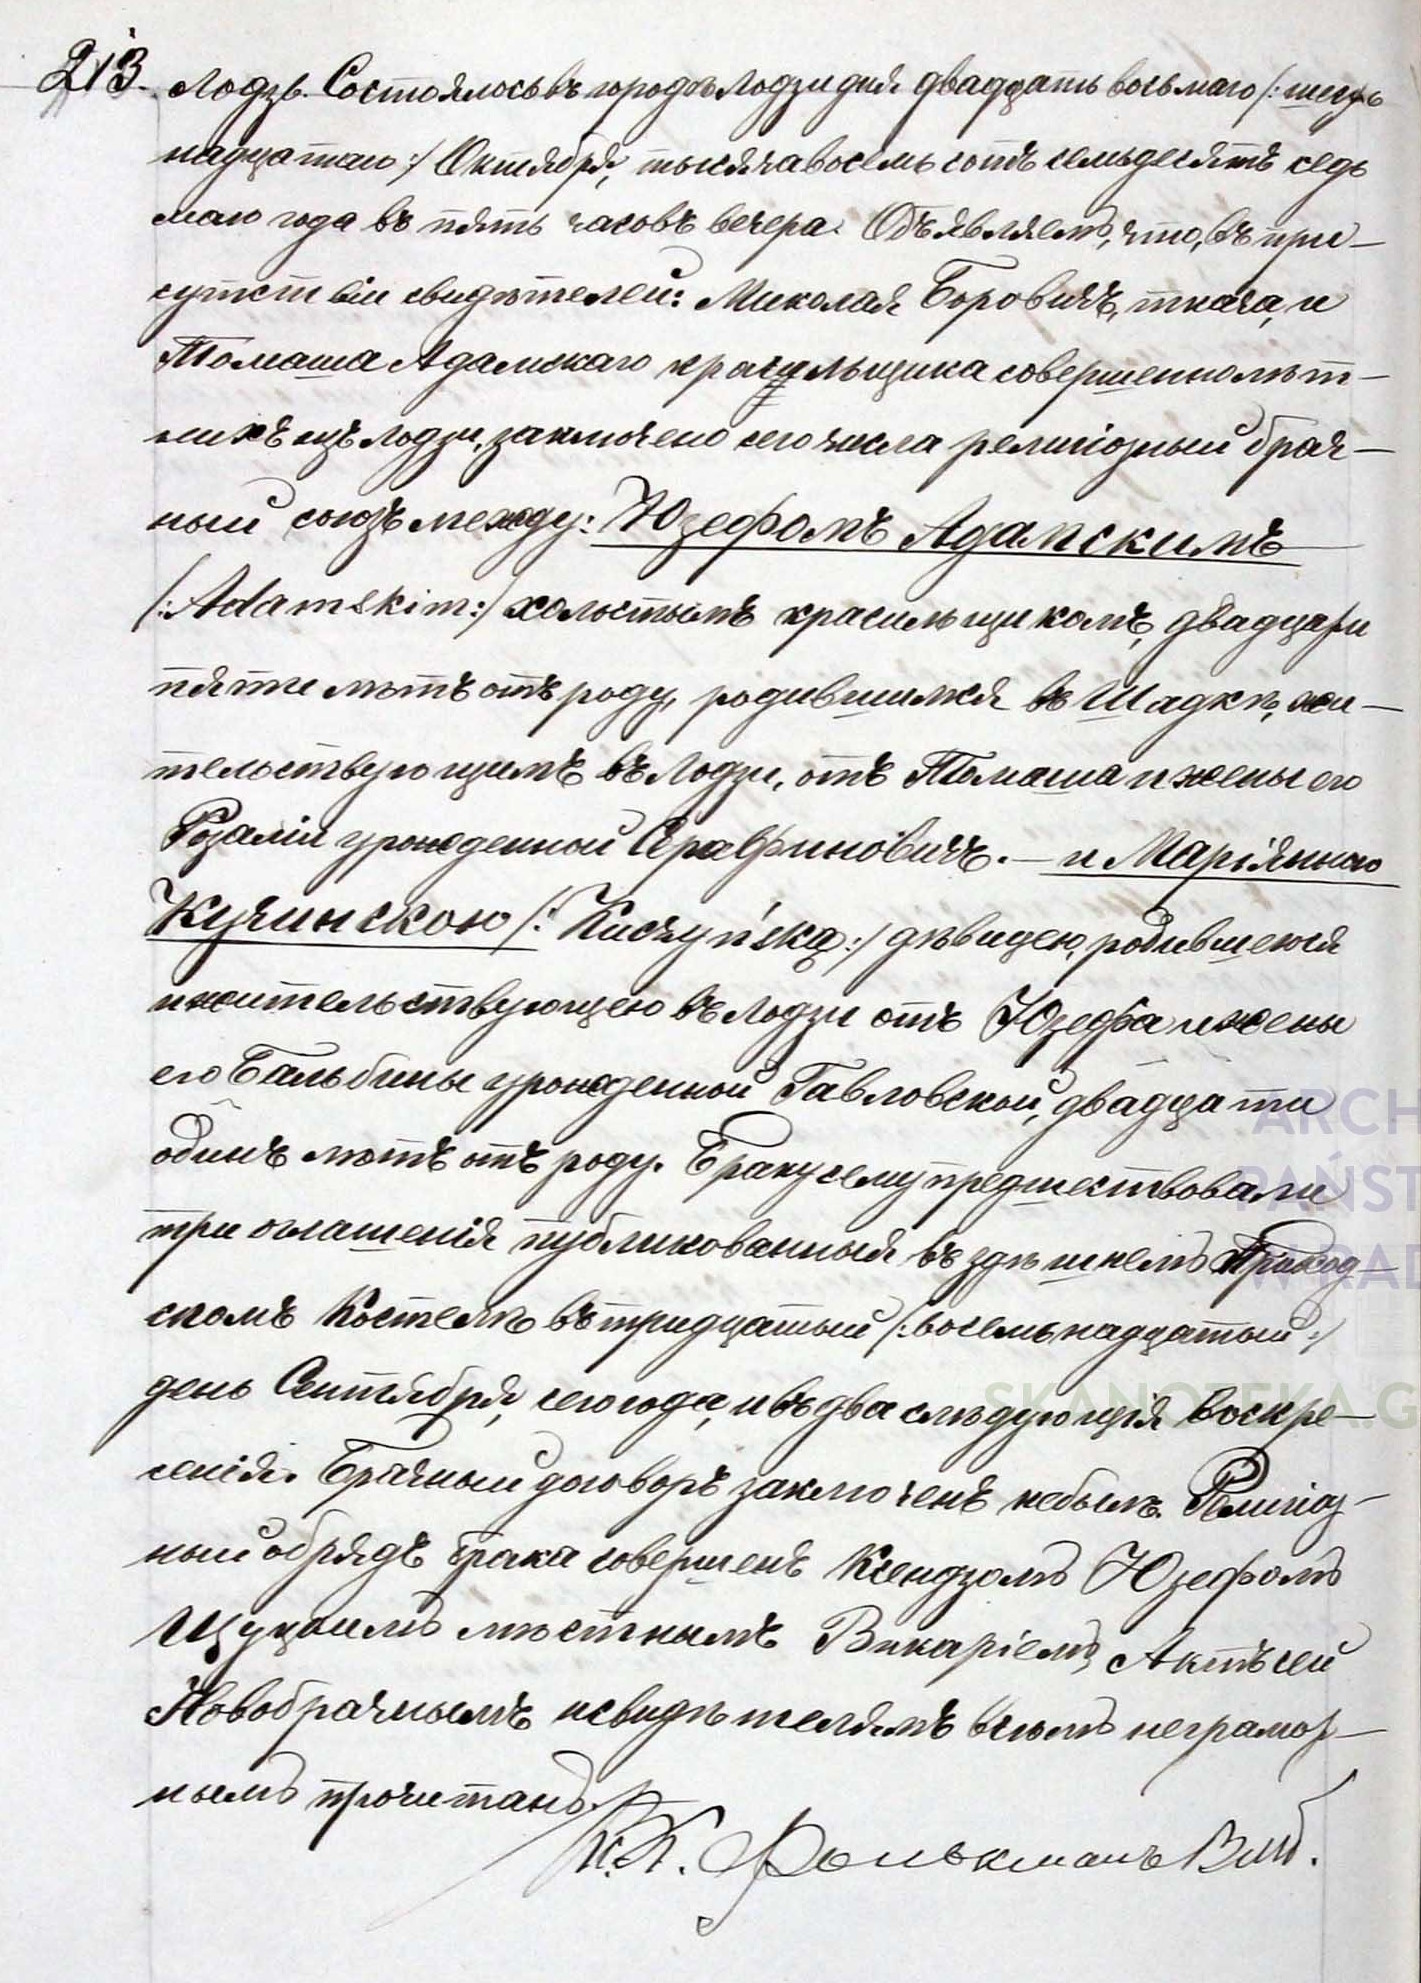 213. Лодзь. Состоялось въ городѣ Лодзи дня двадцать восьмаго /: шест
надцатаго :/ Октября, тысяча восемь сотъ семьдесятъ седь
маго года въ пять часовъ вечера. Объявляемъ, что, въ при–
сутствіи свидѣтелей: Миколая Боровичъ, ткача, и
Томаша Адамскаго красильщика совершеннолѣт–
нихъ изъ Лодзи, заключено сего числа религіозный брач–
ный союзъ между: Юзефомъ Адамскимъ
/: Adamskim :/ холостымъ красильщикомъ, двадцати
пяти лѣтъ отъ роду, родившимся въ Шадкѣ, жи–
тельствующимъ въ Лодзи, отъ Томаша и жены его
Розаліи урожденной Серафиновичъ. — и Маріянною
Кучинскою /: Kuczyńską :/ дѣвицею, родившеюся
и жительствующею въ Лодзи отъ Юзефа и жены
его Бальбины урожденной Гавловской, двадцати
одинъ лѣтъ отъ роду. Браку сему предшествовали
три оглашенія публикованныя въ здѣшнемъ Приход–
скомъ Костелѣ въ тридцатый /: восемьнадцатый :/
день Сентября, сего года, и въ два слѣдующія воскре–
сенія. Брачный договоръ заключенъ небылъ. Религіоз–
ный обрядъ брака совершенъ Ксендзомъ Юзефомъ
Щуцкимъ мѣстнымъ Викаріемъ, Актъ сей
Новобрачнымъ и свидѣтелямъ всѣмъ неграмот–
нымъ прочитанъ.
К. Фолькманъ
ARCH
PAŃST
W RAD
SKANOTEKA.G